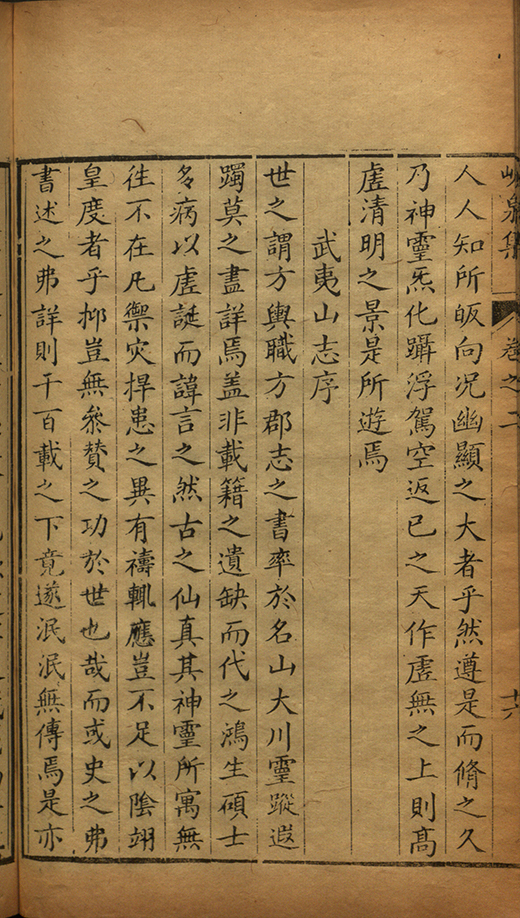 峴泉集
卷之二
十六
人人知所皈向况幽顯之大者乎然遵是而脩之久
乃神靈炁化躡浮駕空返已之天作虛無之上則高
虛清明之景是所遊焉
武夷山志序
世之謂方輿職方郡志之書率於名山大川靈蹤遐
躅莫之盡詳焉盖非載籍之遺缺而代之鴻生碩士
多病以虛誕而諱言之然古之仙真其神靈所寓無
徃不在凡禦灾捍患之異有禱輒應豈不足以陰翊
皇度者乎抑豈無叅賛之功於世也哉而或史之弗
書述之弗詳則千百載之下竟遂泯泯無傳焉是亦